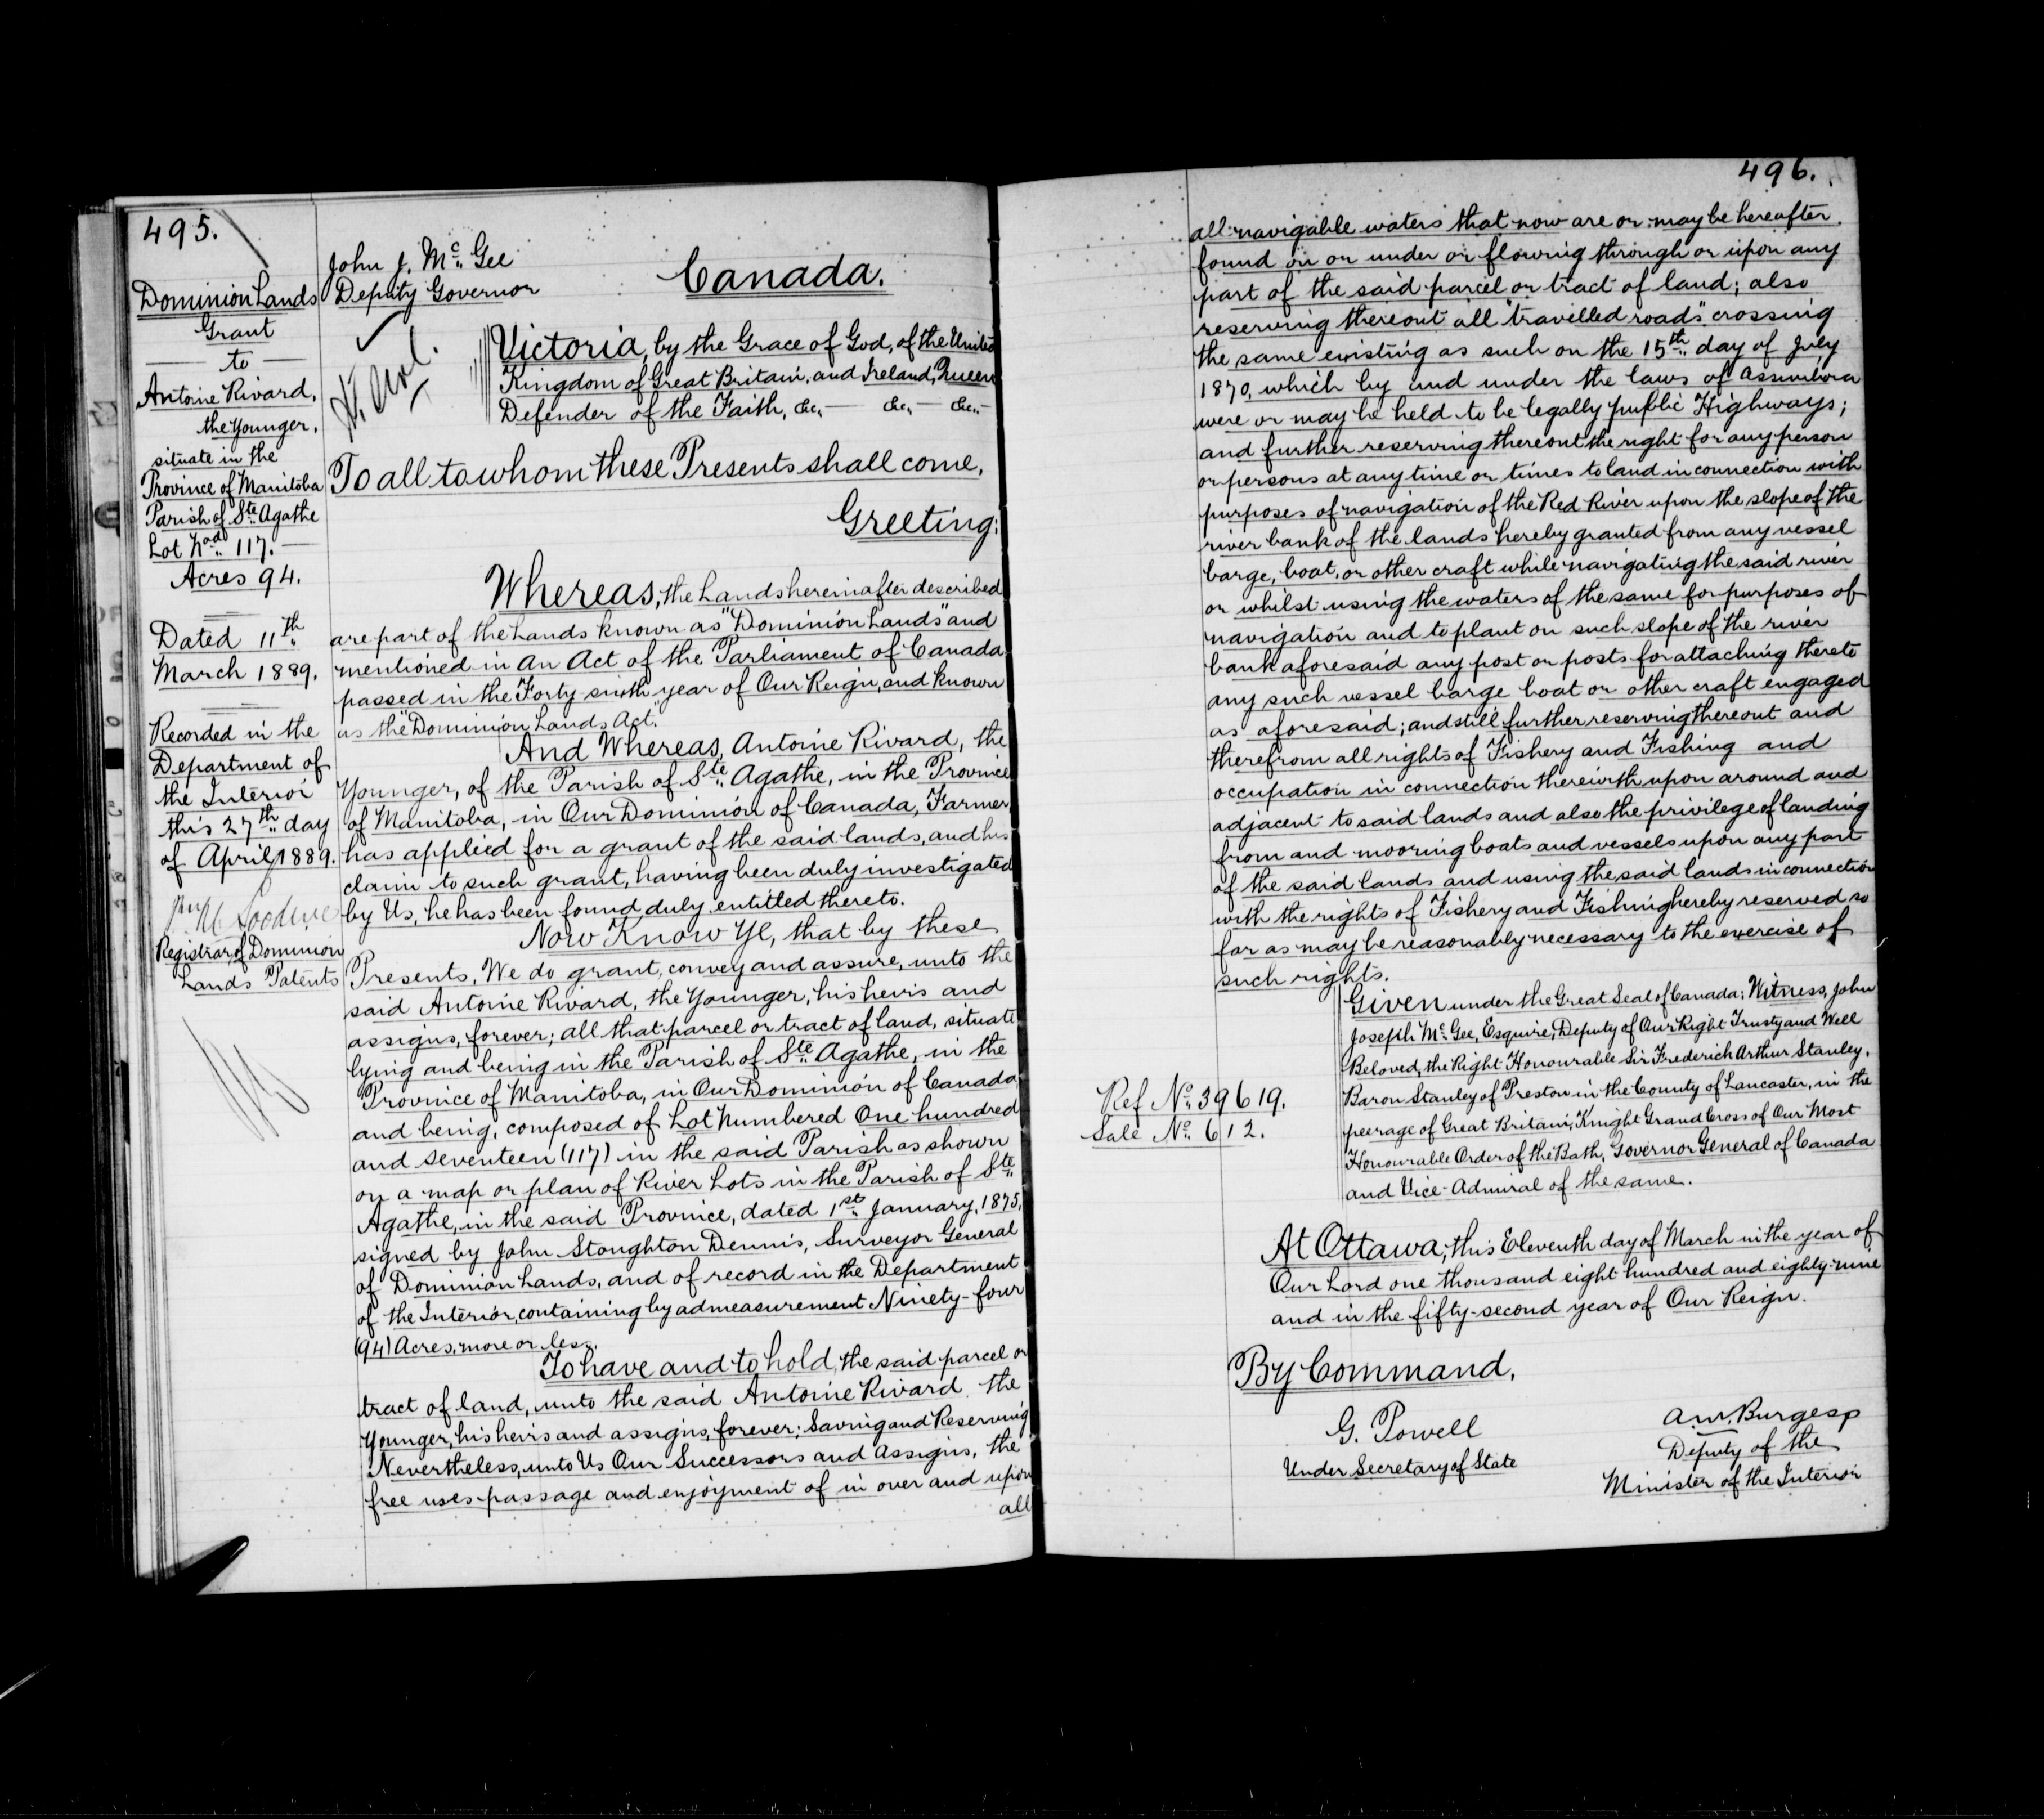 495.
Dominion Lands
Grant
to
Antoine Rivard,
the Younger,
situate in the
Province of Manitoba
Parish of Ste. Agathe
Lot Nod. 117.
Acres 94.
Dated 11th
March 1889.
Recorded in the
Department of
the Interior
this 27th day
of April 1889.
Registrar of Dominion
Lands Patents
John J. Mc. Gee
Deputy Governor
Canada.
Victoria, by the Grace of God, of the United
Kingdom of Great Britain, and Ireland, Queen
Defender of the Faith, &c,- &c,- &c,-
To all to whom these Presents shall come,
Greeting:
Whereas, the Lands hereinafter described
are part of the Lands known as "Dominion Lands" and
mentioned in An Act of the Parliament of Canada
passed in the Forty-sixth year of Our Reign, and known
as the "Dominion Lands Act."
And Whereas, Antoine Rivard, the
Younger, of the Parish of Ste. Agathe, in the Province
of Manitoba, in Our Dominion of Canada, Farmer
has applied for a grant of the said lands, and his
claim to such grant, having been duly investigated
by Us, he has been found duly entitled thereto.
Now Know Ye, that by these
Presents, We do grant, convey and assure, unto the
said Antoine Rivard, the Younger, his heirs and
assigns, forever; all that parcel or tract of land, situate
lying and being in the Parish of Ste. Agathe, in the
Province of Manitoba, in Our Dominion of Canada
and being, composed of Lot Numbered One hundred
and seventeen (117) in the said Parish as shown
on a map or plan of River Lots in the Parish of Ste.
Agathe, in the said Province, dated 1st January, 1875,
signed by John Stoughton Dennis, Surveyor General
of Dominion Lands, and of record in the Department
of the Interior, containing by admeasurement Ninety-four
(94) Acres, more or less.
To have and to hold, the said parcel or
tract of land, unto the said Antoine Rivard, the
Younger, his heirs and assigns, forever; Saving and Reserving
Nevertheless, unto Us Our Successors and Assigns, the
free uses passage and enjoyment of in over and upon
all
496.
all navigable waters that now are or may be hereafter
found on or under or flowing through or upon any
part of the said parcel or tract of land; also
reserving thereout all "travelled roads" crossing
the same existing as such on the 15th day of July
1870, which by and under the laws of Assiniboia
were or may be held to be legally public Highways;
and further reserving thereout the right for any person
or persons at any time or times to land in connection with
purposes of navigation of the Red River upon the slope of the
river bank of the lands hereby granted from any vessel
barge, boat, or other craft while navigating the said river
or whilst using the waters of the same for purposes of
navigation and to plant on such slope of the river
bank aforesaid any post or posts for attaching thereto
any such vessel barge boat or other craft engaged
as aforesaid; and still further reserving thereout and
therefrom all rights of Fishery and Fishing and
occupation in connection therewith upon around and
adjacent to said lands and also the privilege of landing
from and mooring boats and vessels upon any part
of the said lands and using the said lands in connection
with the rights of Fishery and Fishing hereby reserved so
far as may be reasonably necessary to the exercise of
such rights.
Given under the Great Seal of Canada: Witness, John
Joseph Mc. Gee, Esquire, Deputy of Our Right Trusty and Well
Beloved, the Right Honourable Sir Frederich Arthur Stanley,
Baron Stanley of Preston in the County of Lancaster, in the
peerage of Great Britain, Knight Grand Cross of Our Most
Honourable Order of the Bath, Governor General of Canada
and Vice-Admiral of the same.
Ref No. 39619.
Sale No. 612.
At Ottawa, this Eleventh day of March in the year of
Our Lord one thousand eight hundred and eighty-nine
and in the fifty-second year of Our Reign.
By Command,
G. Powell
Under Secretary of State
A.M. Burgess
Deputy of the
Minister of the Interior